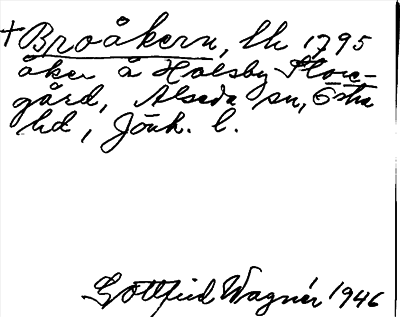 † Broåkern, lh 1795
åker å Holsby Store-
gård, Alseda sn, Östra
hd, Jönk. l.
Gottfrid Wagnér 1946